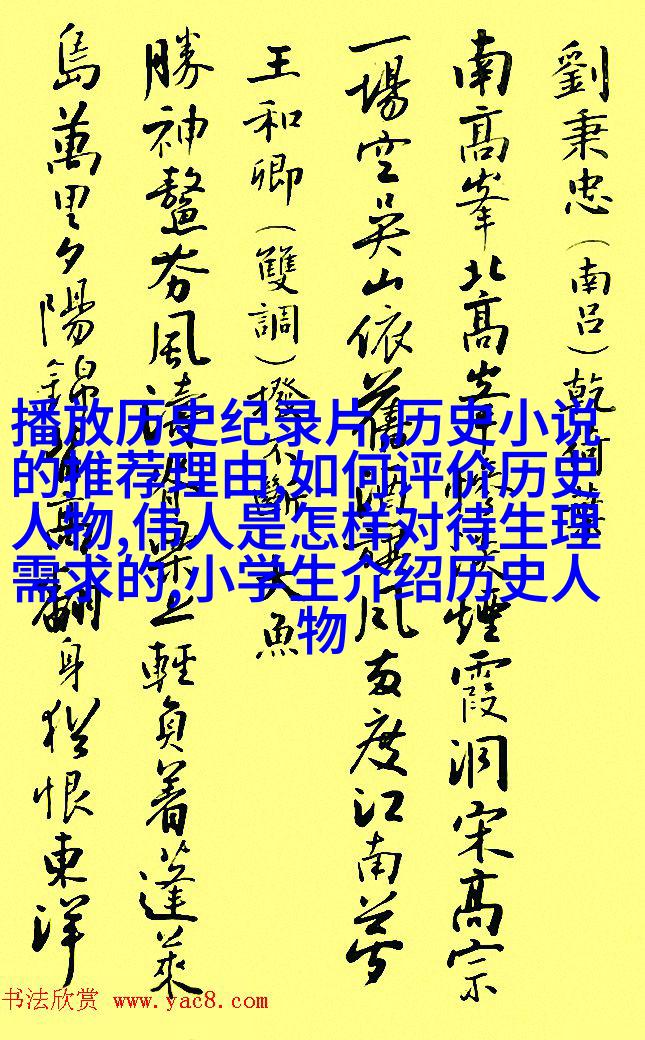 劉秉忠（南呂）乾荷葉
南高峯北高峯惨淡煙霞洞宋高宗
一場空吳山依舊酒旗風兩度江南夢
王和卿（雙調）撥不斷 大魚
勝神鰲夯風濤脊梁上輕負着蓬萊
島萬里夕陽錦背高翻身猶恨東洋
播放历史纪录片,历史小说
的推荐理由,如何评价历史
人物,伟人是怎样对待生理
需求的,小学生介绍历史人
物
书法欣赏 www.yac8.com